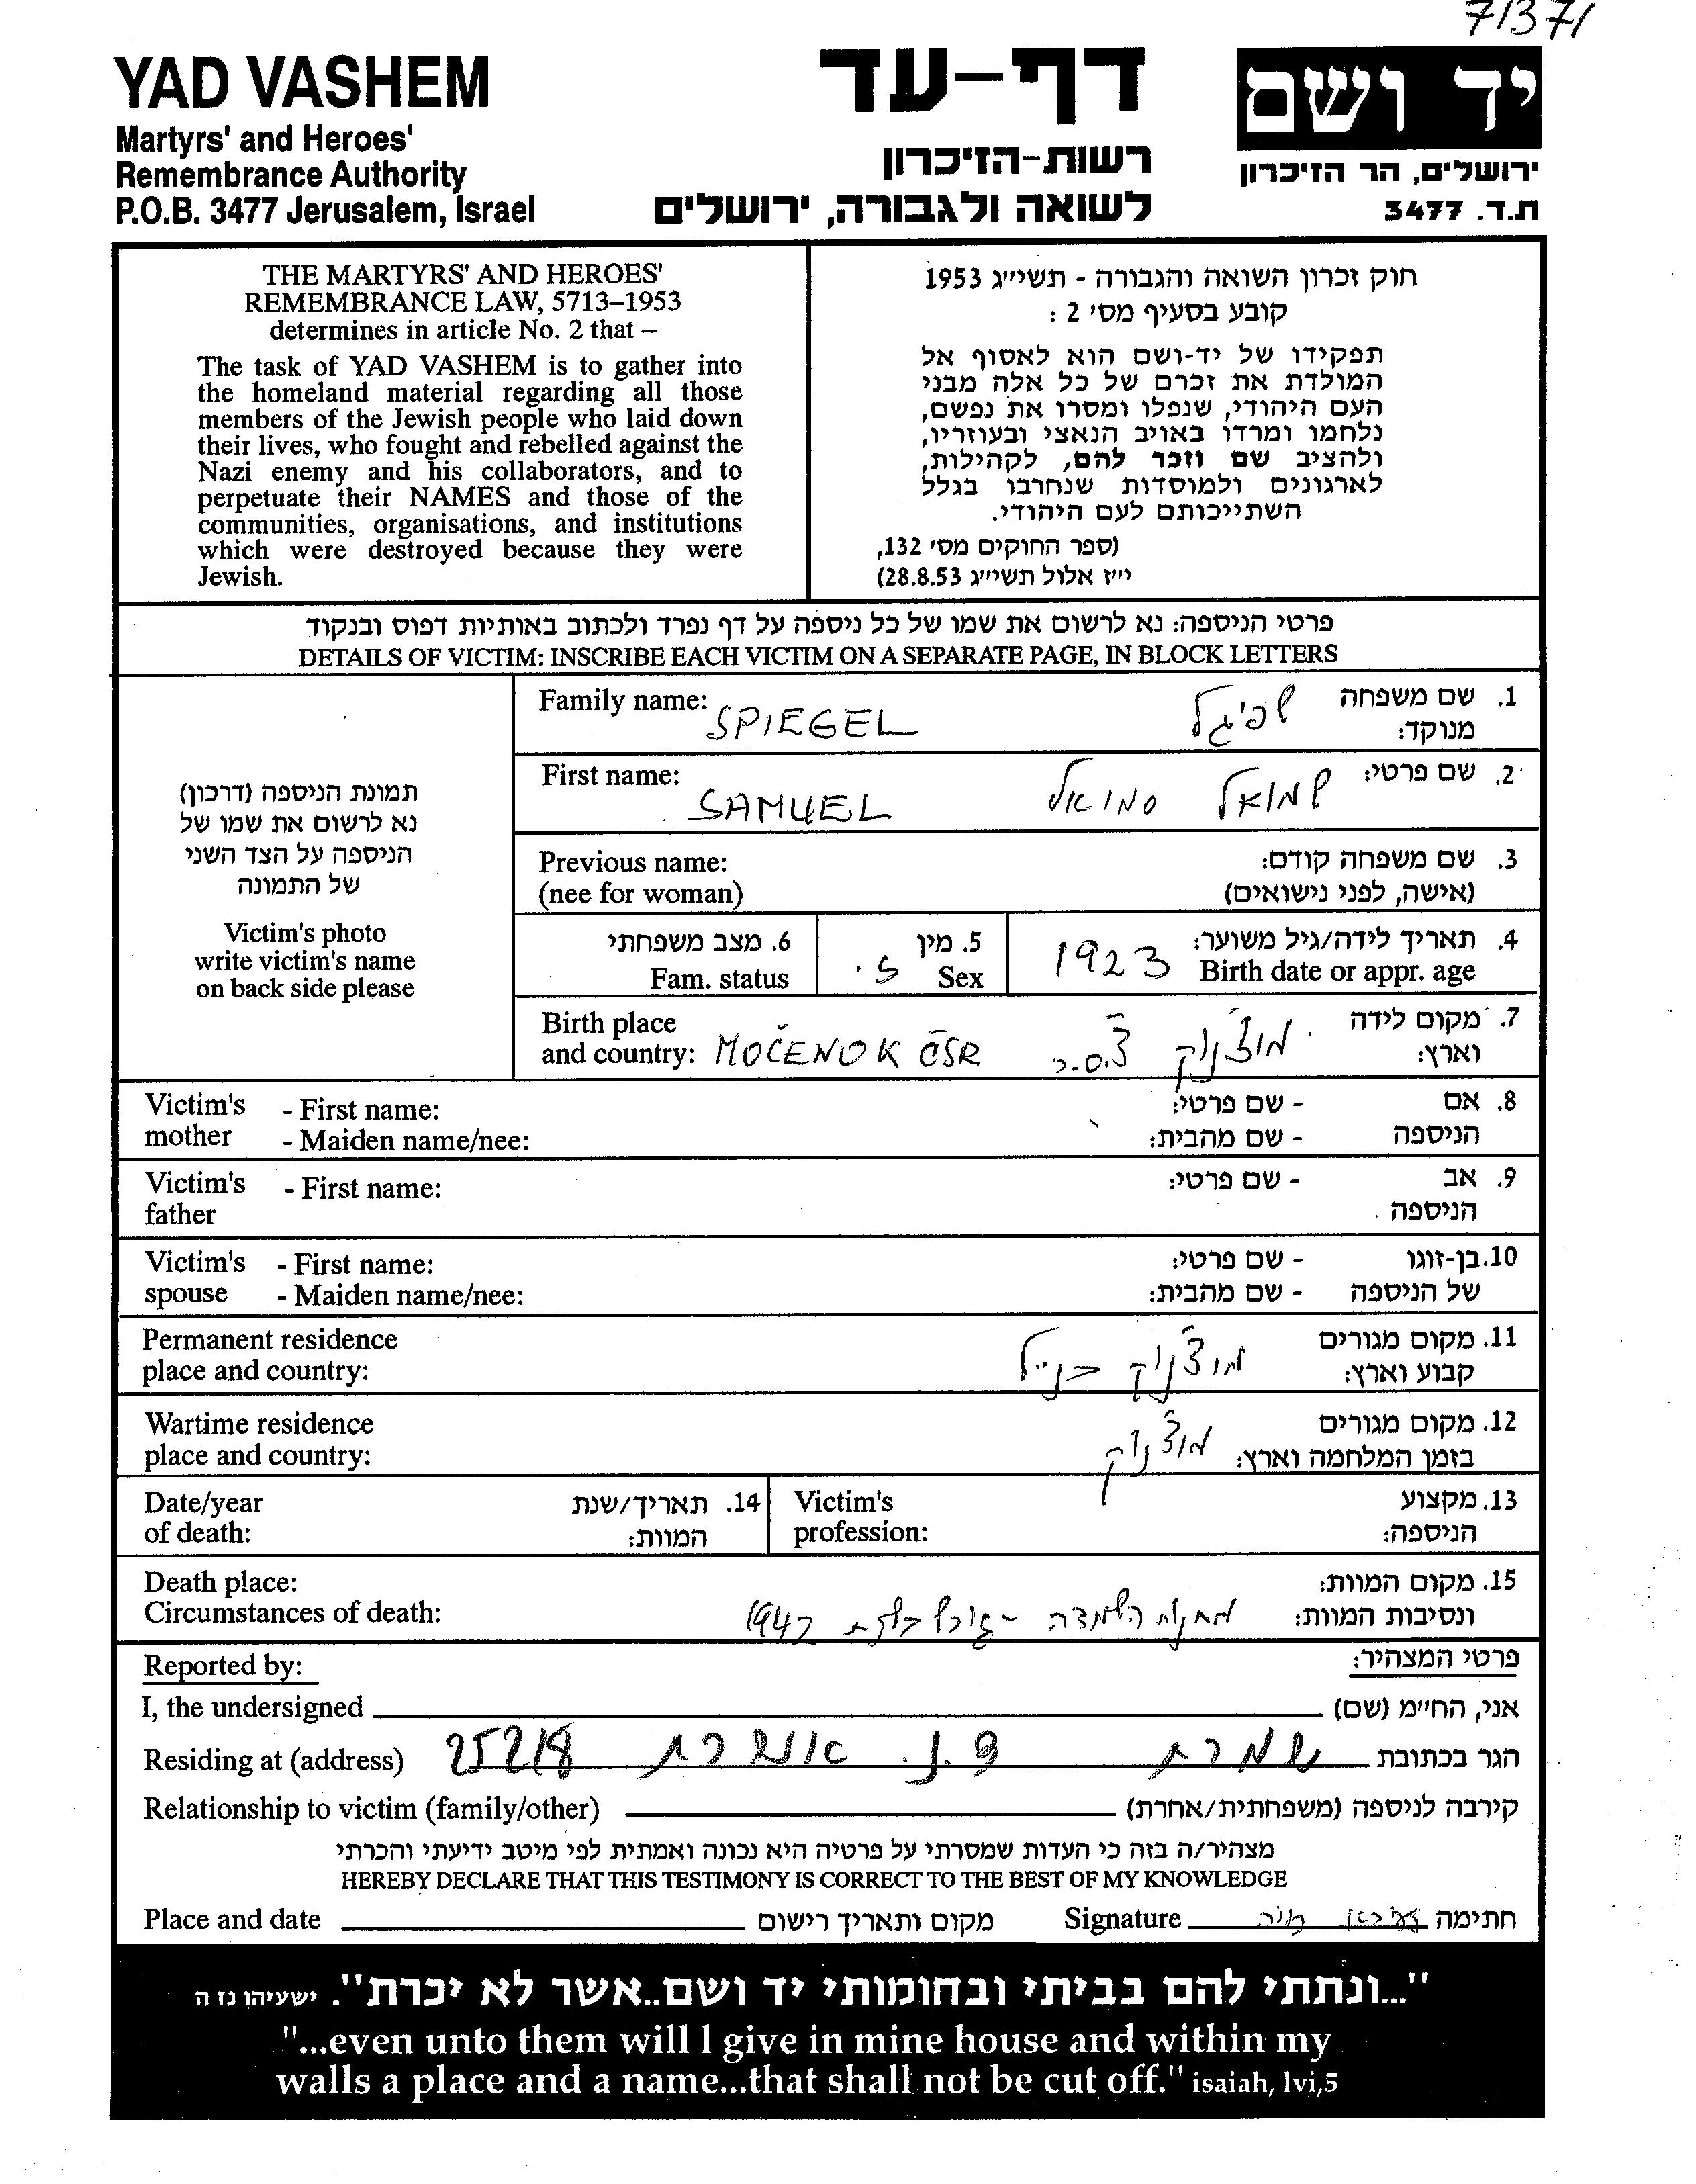 71371
YAD VASHEM
Martyrs' and Heroes'
Remembrance Authority
P.O.B. 3477 Jerusalem, Israel
דף-עד
רשות-הזיכרון
לשואה ולגבורה, ירושלים
יד ושם
ירושלים, הר הזיכרון
ת.ד. 3477
THE MARTYRS' AND HEROES'
REMEMBRANCE LAW, 5713–1953
determines in article No. 2 that –
The task of YAD VASHEM is to gather into
the homeland material regarding all those
members of the Jewish people who laid down
their lives, who fought and rebelled against the
Nazi enemy and his collaborators, and to
perpetuate their NAMES and those of the
communities, organisations, and institutions
which were destroyed because they were
Jewish.
חוק זכרון השואה והגבורה - תשי״ג 1953
קובע בסעיף מס׳ 2 :
תפקידו של יד-ושם הוא לאסוף אל
המולדת את זכרם של כל אלה מבני
העם היהודי, שנפלו ומסרו את נפשם,
נלחמו ומרדו באויב הנאצי ובעוזריו,
ולהציב שם וזכר להם, לקהילות,
לארגונים ולמוסדות שנחרבו בגלל
השתייכותם לעם היהודי.
(ספר החוקים מס׳ 132,
י״ז אלול תשי״ג 28.8.53)
פרטי הניספה: נא לרשום את שמו של כל ניספה על דף נפרד ולכתוב באותיות דפוס ובנקוד
DETAILS OF VICTIM: INSCRIBE EACH VICTIM ON A SEPARATE PAGE, IN BLOCK LETTERS
תמונת הניספה (דרכון)
נא לרשום את שמו של
הניספה על הצד השני
של התמונה
Victim's photo
write victim's name
on back side please
Family name: SPIEGEL שפיגל 1. שם משפחה
מנוקד:
First name: SAMUEL שמואל סמואל 2. שם פרטי:
Previous name: 3. שם משפחה קודם:
(nee for woman) (אישה, לפני נישואים)
6. מצב משפחתי 5. מין 4. תאריך לידה/גיל משוער:
Fam. status Sex ז. Birth date or appr. age 1923
Birth place 7. מקום לידה
and country: MOČENOK ČSR מוצ'נוק צ'.ס.ר וארץ:
Victim's - First name: - שם פרטי: 8. אם
mother - Maiden name/nee: - שם מהבית: הניספה
Victim's - First name: - שם פרטי: 9. אב
father הניספה
Victim's - First name: - שם פרטי: 10. בן-זוגו
spouse - Maiden name/nee: - שם מהבית: של הניספה
Permanent residence 11. מקום מגורים
place and country: מוצ'נוק כנ״ל קבוע וארץ:
Wartime residence 12. מקום מגורים
place and country: מוצ'נוק בזמן המלחמה וארץ:
Date/year 14. תאריך/שנת Victim's 13. מקצוע
of death: המוות: profession: הניספה:
Death place: 15. מקום המוות:
Circumstances of death: מחנות השמדה 1942 ונסיבות המוות:
Reported by: פרטי המצהיר:
I, the undersigned אני, הח״מ (שם)
Residing at (address) שמרת ד.נ. אשרת 25218 הגר בכתובת
Relationship to victim (family/other) קירבה לניספה (משפחתית/אחרת)
מצהיר/ה בזה כי העדות שמסרתי על פרטיה היא נכונה ואמתית לפי מיטב ידיעתי והכרתי
HEREBY DECLARE THAT THIS TESTIMONY IS CORRECT TO THE BEST OF MY KNOWLEDGE
Place and date מקום ותאריך רישום Signature חתימה
"...ונתתי להם בביתי ובחומותי יד ושם..אשר לא יכרת". ישעיהו נז ה
"...even unto them will I give in mine house and within my
walls a place and a name...that shall not be cut off." isaiah, lvi,5